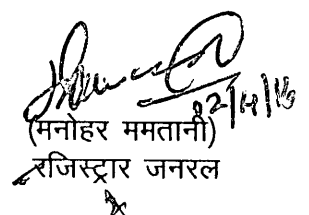 02/11/16
(मनोहर ममतानी)
रजिस्ट्रार जनरल